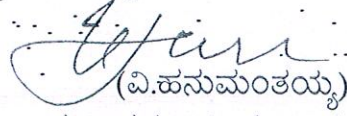 (ವಿ.ಹನುಮಂತಯ್ಯ)